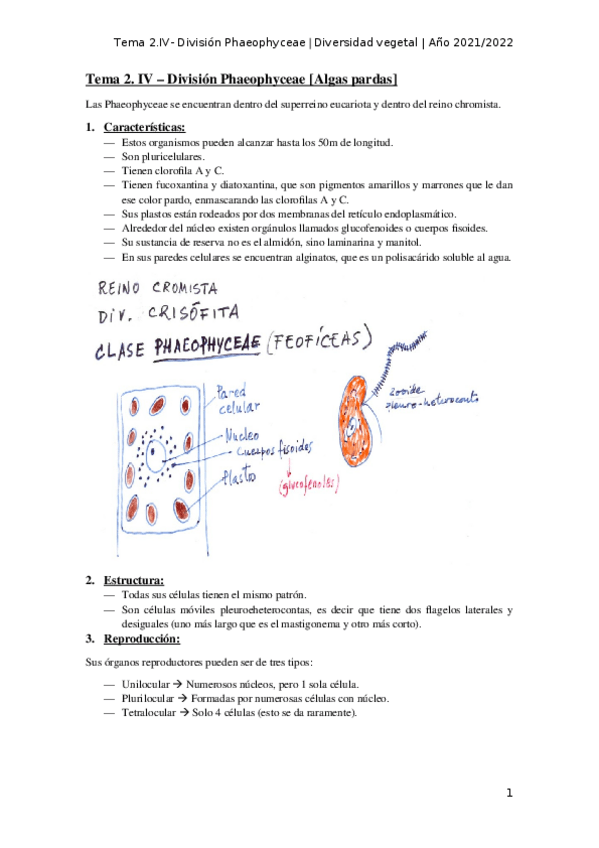 Tema 2.IV- División Phaeophyceae | Diversidad vegetal | Año 2021/2022
Tema 2. IV – División Phaeophyceae [Algas pardas]
Las Phaeophyceae se encuentran dentro del superreino eucariota y dentro del reino chromista.
1. Características:
— Estos organismos pueden alcanzar hasta los 50m de longitud.
— Son pluricelulares.
— Tienen clorofila A y C.
— Tienen fucoxantina y diatoxantina, que son pigmentos amarillos y marrones que le dan
ese color pardo, enmascarando las clorofilas A y C.
— Sus plastos están rodeados por dos membranas del retículo endoplasmático.
— Alrededor del núcleo existen orgánulos llamados glucofenoides o cuerpos fisoides.
— Su sustancia de reserva no es el almidón, sino laminarina y manitol.
— En sus paredes celulares se encuentran alginatos, que es un polisacárido soluble al agua.
REINO CROMISTA
DIV. CRISÓFITA
CLASE PHAEOPHYCEAE (FEOFÍCEAS)
Pared
celular
Nucleo
cuerpos fisoides
Plasto
(glucofenoles)
zooide
pleuro-heteroconto
2. Estructura:
— Todas sus células tienen el mismo patrón.
— Son células móviles pleuroeheterocontas, es decir que tiene dos flagelos laterales y
desiguales (uno más largo que es el mastigonema y otro más corto).
3. Reproducción:
Sus órganos reproductores pueden ser de tres tipos:
— Unilocular → Numerosos núcleos, pero 1 sola célula.
— Plurilocular → Formadas por numerosas células con núcleo.
— Tetralocular → Solo 4 células (esto se da raramente).
1